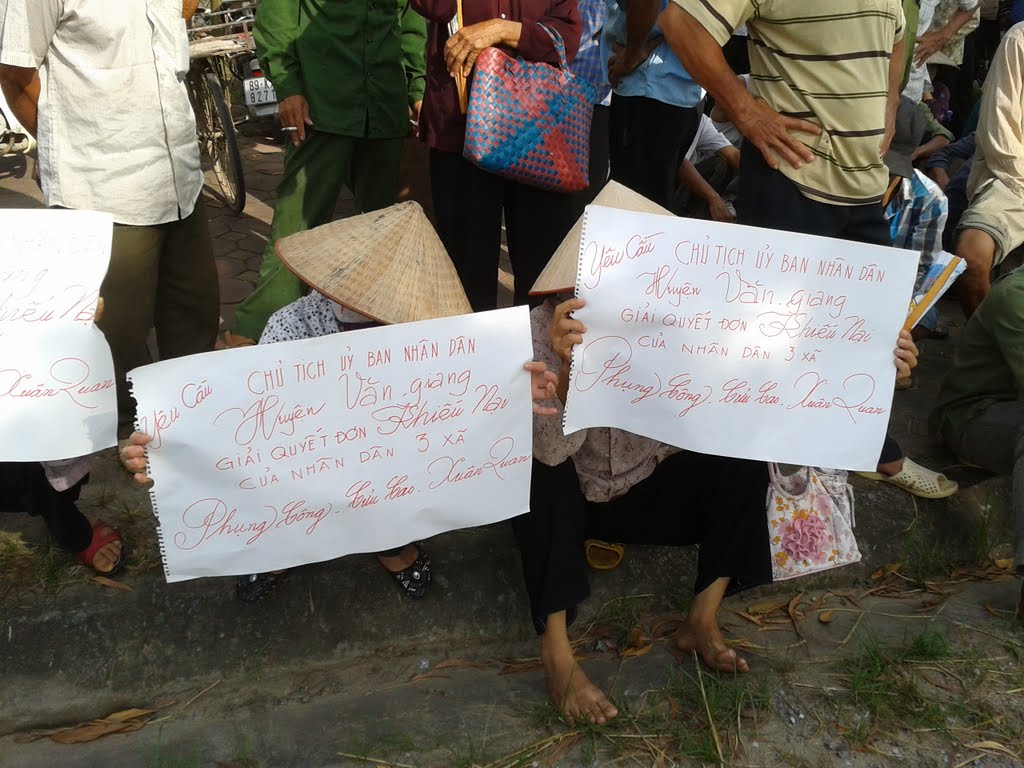 89-
827
NHÂN DÂN
giang
Khiếu Nại
Xuân Quan
Yêu Cầu CHỦ TỊCH ỦY BAN NHÂN DÂN
Huyện Văn giang
GIẢI QUYẾT ĐƠN Khiếu Nại
CỦA NHÂN DÂN 3 XÃ
Phụng Công. Cửu Cao. Xuân Quan
Yêu Cầu CHỦ TỊCH ỦY BAN NHÂN DÂN
Huyện Văn. giang
GIẢI QUYẾT ĐƠN Khiếu Nại
CỦA NHÂN DÂN 3 XÃ
Phụng Công. Cửu Cao. Xuân Quan